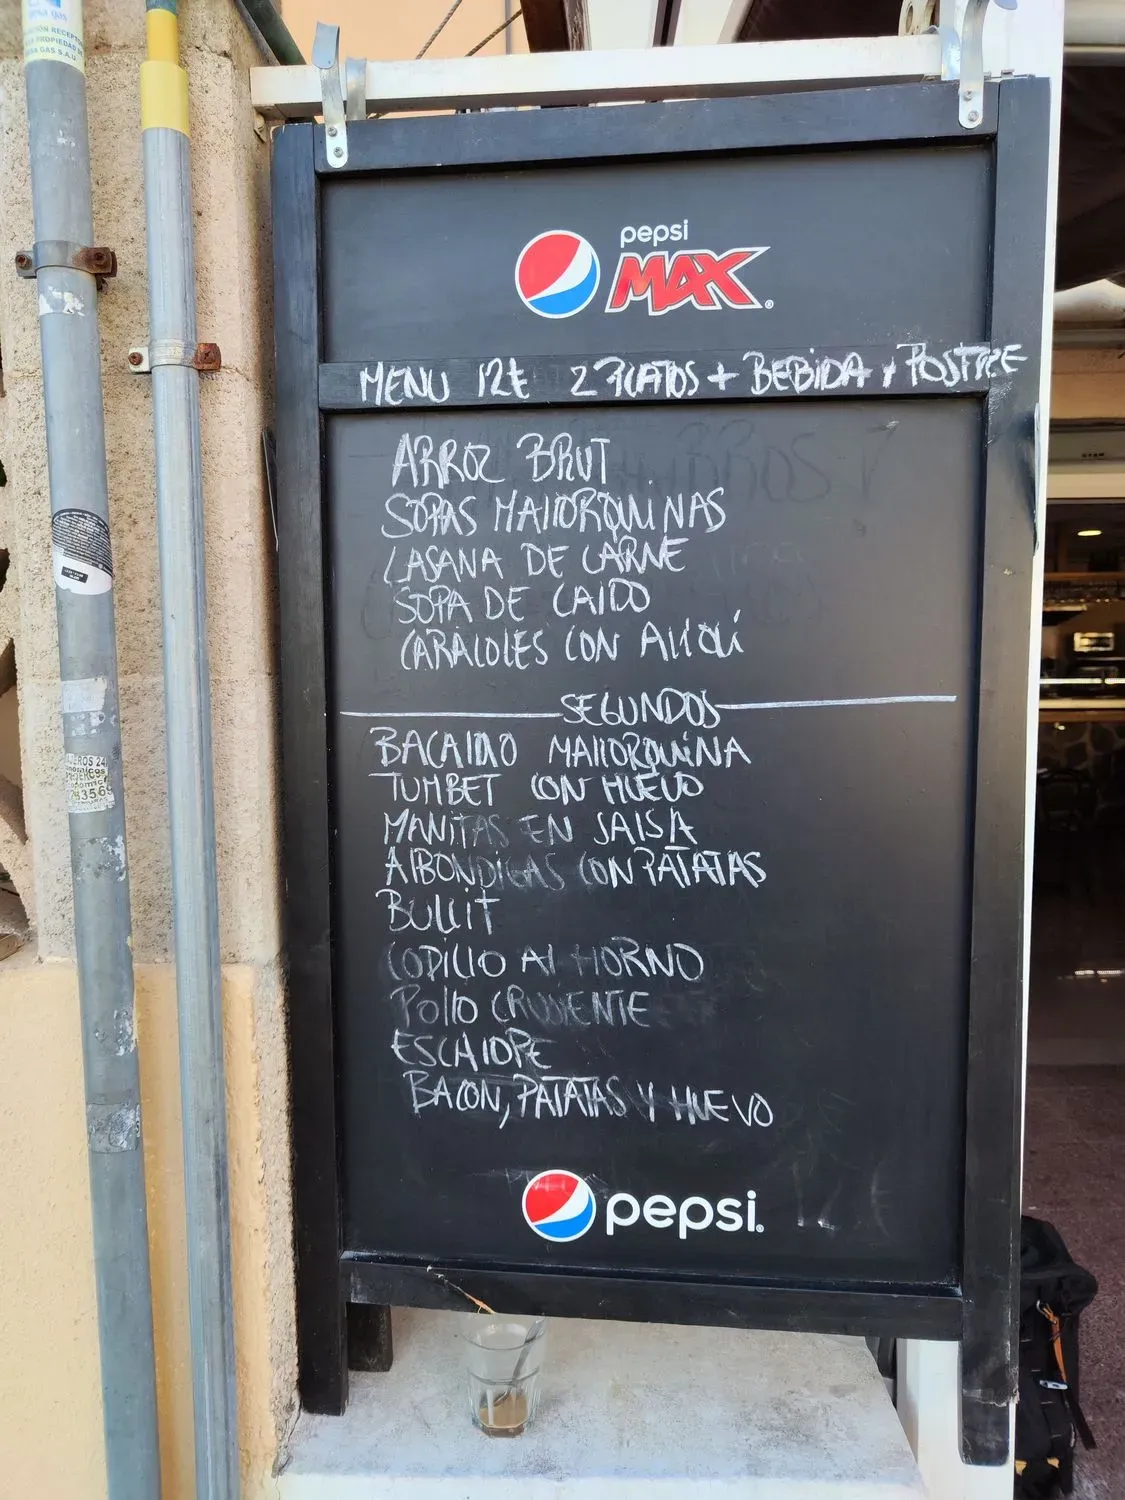 pepsi
MAX
MENU 12€ 2 PLATOS + BEBIDA Y POSTRE
ARROZ BRUT
SOPAS MALLORQUINAS
LASANA DE CARNE
SOPA DE CALDO
CARACOLES CON ALIOLI
SEGUNDOS
BACALAO MALLORQUINA
TUMBET CON HUEVO
MANITAS EN SALSA
ALBONDIGAS CON PATATAS
BULLIT
CODILLO AL HORNO
POLLO CRUJIENTE
ESCALOPE
BACON, PATATAS Y HUEVO
pepsi